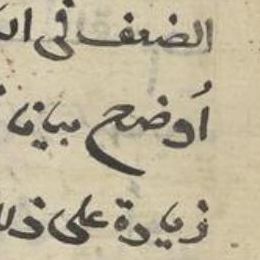 الضعف فى
أوضح بيانا
زيادة على ذلك